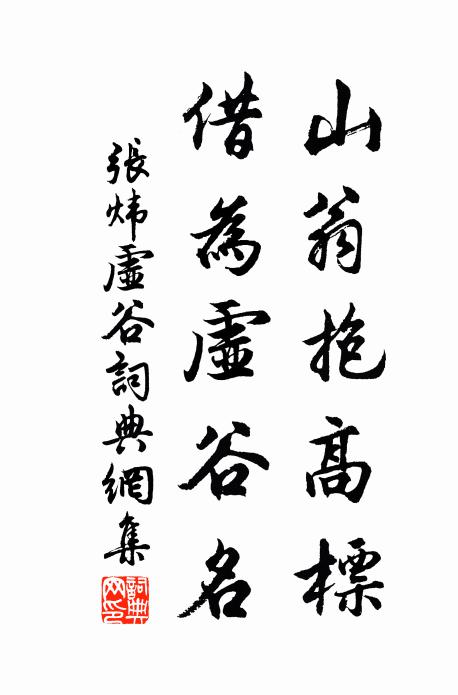 山翁抱高標
借為虛谷名
張煒虛谷詞典網集
詞典网印